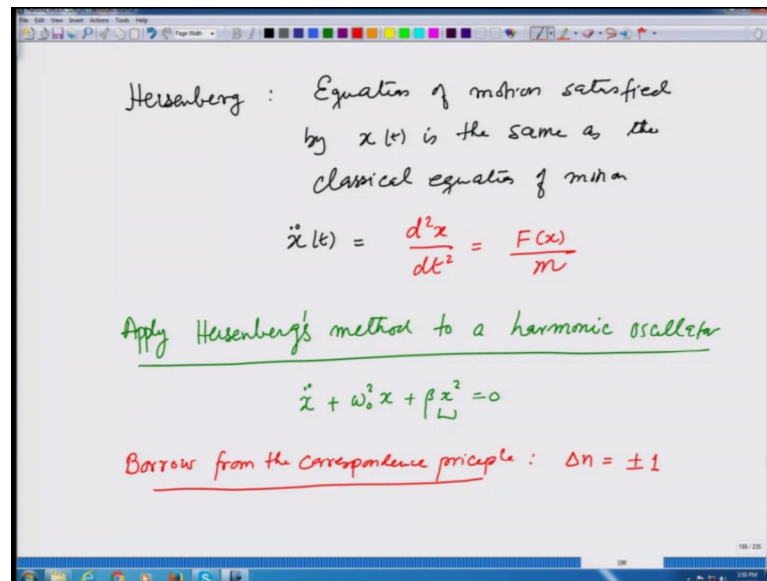 File Edit View Insert Actions Tools Help
Page Width
Heisenberg : Equation of motion satisfied
by x(t) is the same as the
classical equation of motion
ẍ(t) = d²x/dt² = F(x)/m
Apply Heisenberg's method to a harmonic oscillator
ẍ + ω₀² x + βx² = 0
Borrow from the correspondence priceple : Δn = ± 1
199 / 235
198
3:50 PM